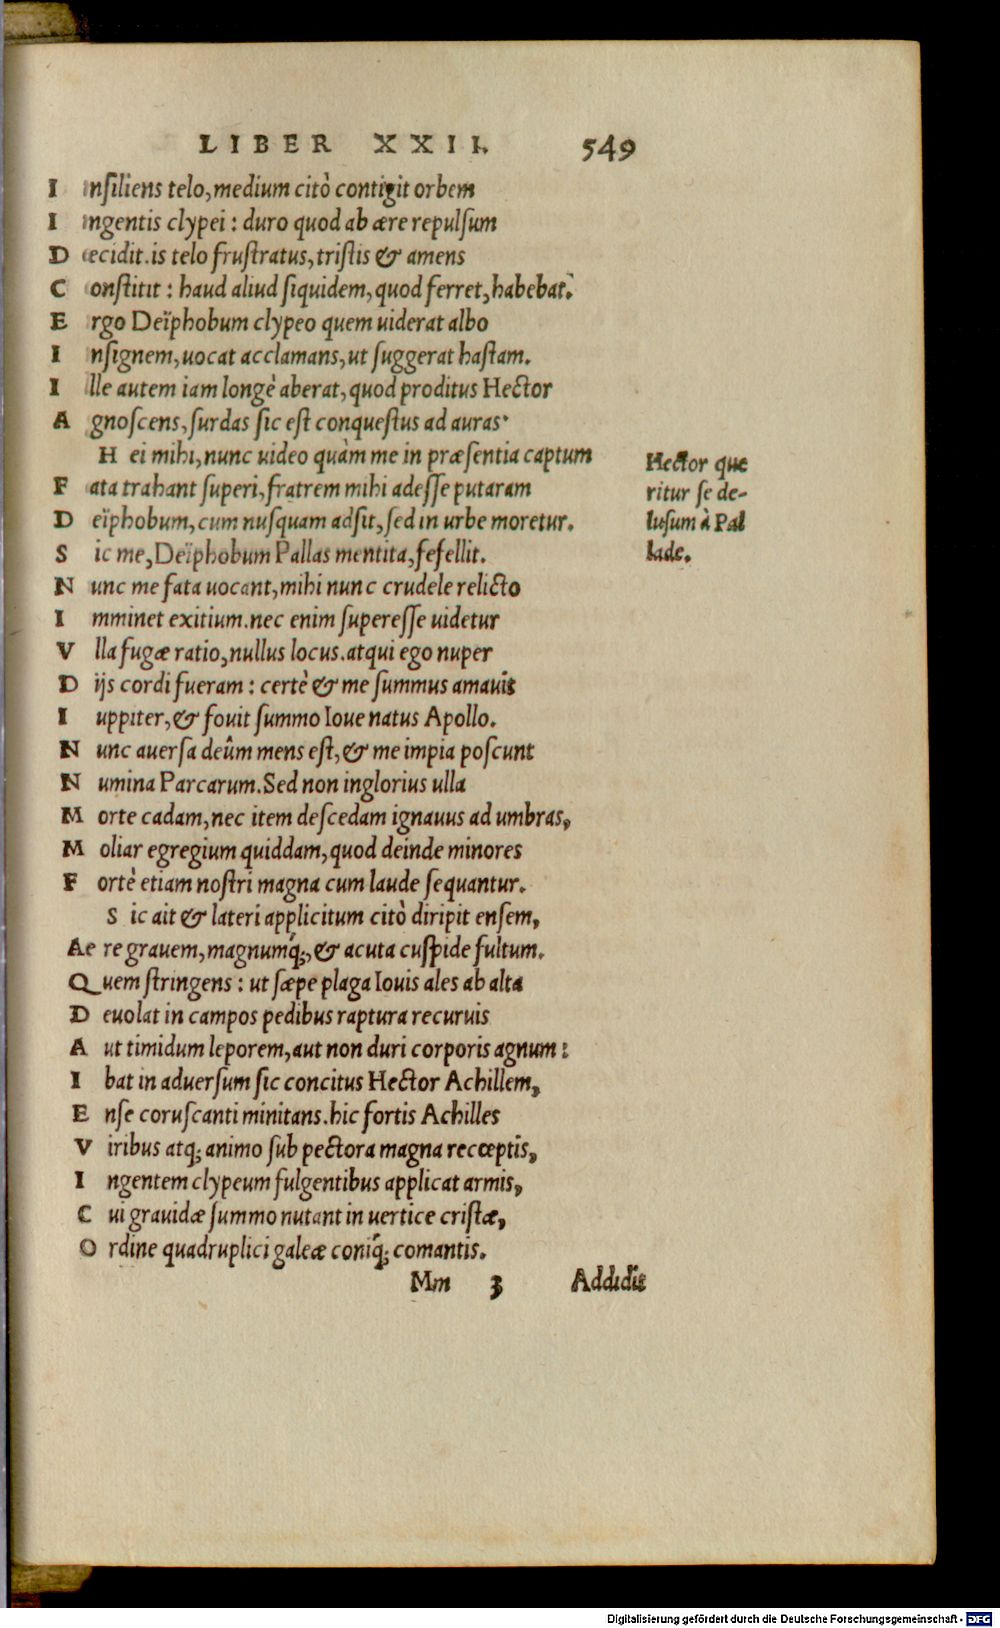 LIBER XXII. 549
Insiliens telo, medium citò contigit orbem
Ingentis clypei: duro quod ab ære repulsum
Decidit. is telo frustratus, tristis & amens
Constitit: haud aliud siquidem, quod ferret, habebat.
Ergo Deïphobum clypeo quem uiderat albo
Insignem, uocat acclamans, ut suggerat hastam.
Ille autem iam longè aberat, quod proditus Hector
Agnoscens, surdas sic est conquestus ad auras.
Hei mihi, nunc uideo quàm me in præsentia captum
Fata trahant superi, fratrem mihi adesse putaram
Deïphobum, cum nusquam adsit, sed in urbe moretur.
Sic me, Deïphobum Pallas mentita, fefellit.
Nunc me fata uocant, mihi nunc crudele relicto
Imminet exitium. nec enim superesse uidetur
Vlla fugæ ratio, nullus locus. atqui ego nuper
Dijs cordi fueram: certè & me summus amauit
Iuppiter, & fouit summo Ioue natus Apollo.
Nunc auersa deûm mens est, & me impia poscunt
Numina Parcarum. Sed non inglorius ulla
Morte cadam, nec item descedam ignauus ad umbras,
Moliar egregium quiddam, quod deinde minores
Fortè etiam nostri magna cum laude sequantur.
Sic ait & lateri applicitum citò diripit ensem,
Aere grauem, magnumq́;, & acuta cuspide fultum.
Quem stringens: ut sæpe plaga Iouis ales ab alta
Deuolat in campos pedibus raptura recuruis
Aut timidum leporem, aut non duri corporis agnum:
Ibat in aduersum sic concitus Hector Achillem,
Ense coruscanti minitans. hic fortis Achilles
Viribus atq; animo sub pectora magna recœptis,
Ingentem clypeum fulgentibus applicat armis,
Cui grauidæ summo nutant in uertice cristæ,
Ordine quadruplici galeæ coniq́; comantis.
Hector que
ritur se de-
lusum à Pal
lade.
Mm 3 Addidit
Digitalisierung gefördert durch die Deutsche Forschungsgemeinschaft - DFG